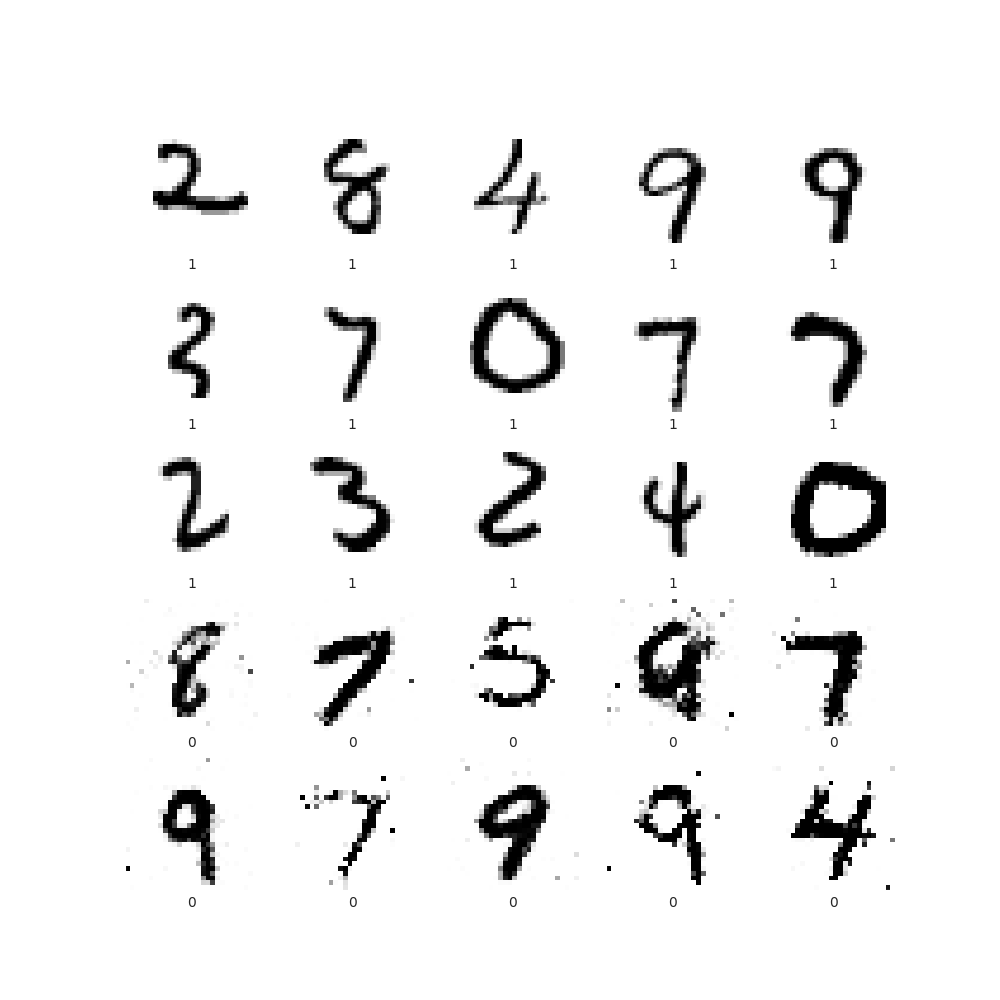 2 8 4 9 9
1 1 1 1 1
3 7 0 7 7
1 1 1 1 1
2 3 2 4 0
1 1 1 1 1
8 7 5 9 7
0 0 0 0 0
9 7 9 9 4
0 0 0 0 0